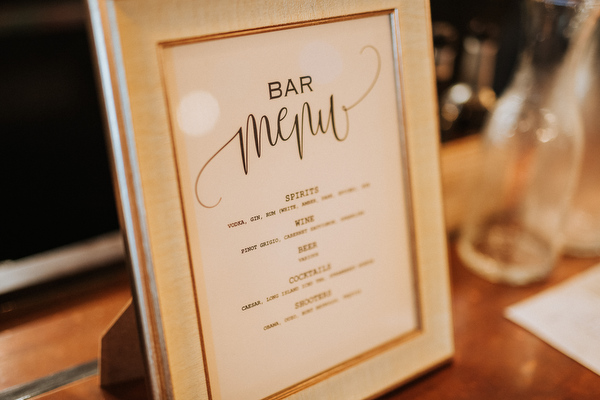 BAR
menu
SPIRITS
VODKA, GIN, RUM (WHITE, AMBER, DARK,
WINE
PINOT GRIGIO, CABERNET SAUVIGNON,
BEER
COCKTAILS
CAESAR, LONG ISLAND ICED TEA,
SHOOTERS